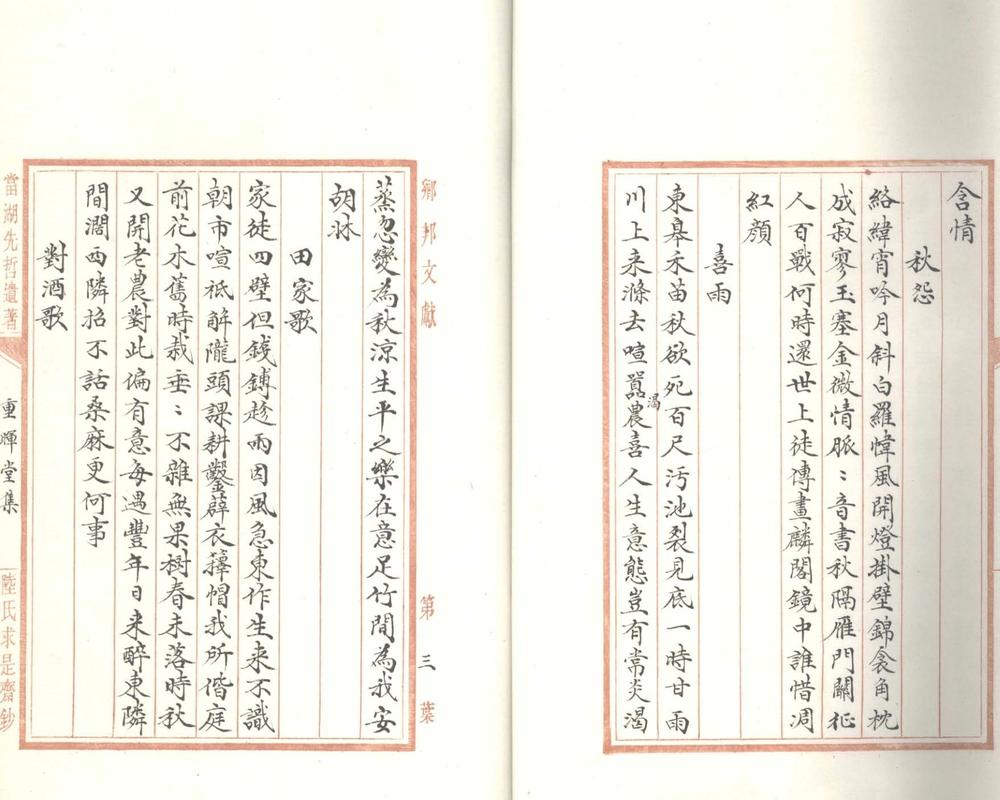 含情
秋怨
絡緯宵吟月斜白羅幃風開燈掛壁錦衾角枕
成寂寥玉塞金微情脈〻音書秋隔雁門關征
人百戰何時還世上徒傳畫麟閣鏡中誰惜凋
紅顔
喜雨
東臯禾苗秋欲死百尺汚池裂見底一時甘雨
川上来滌去喧囂農喜人生意態豈有常炎渴
渴
鄉邦文獻
第三葉
蒸忽變為秋涼生平之樂在意足竹間為我安
胡牀
田家歌
家徒四壁但錢鎛趁雨因風急東作生来不識
朝市喧祗解隴頭課耕鑿薜衣籜帽我所偕庭
前花木舊時栽垂〻不雜無果樹春未落時秋
又開老農對此偏有意每遇豐年日来醉東隣
間濶西隣招不話桑麻更何事
對酒歌
當湖先哲遺著
重暉堂集
陸氏求是齋鈔